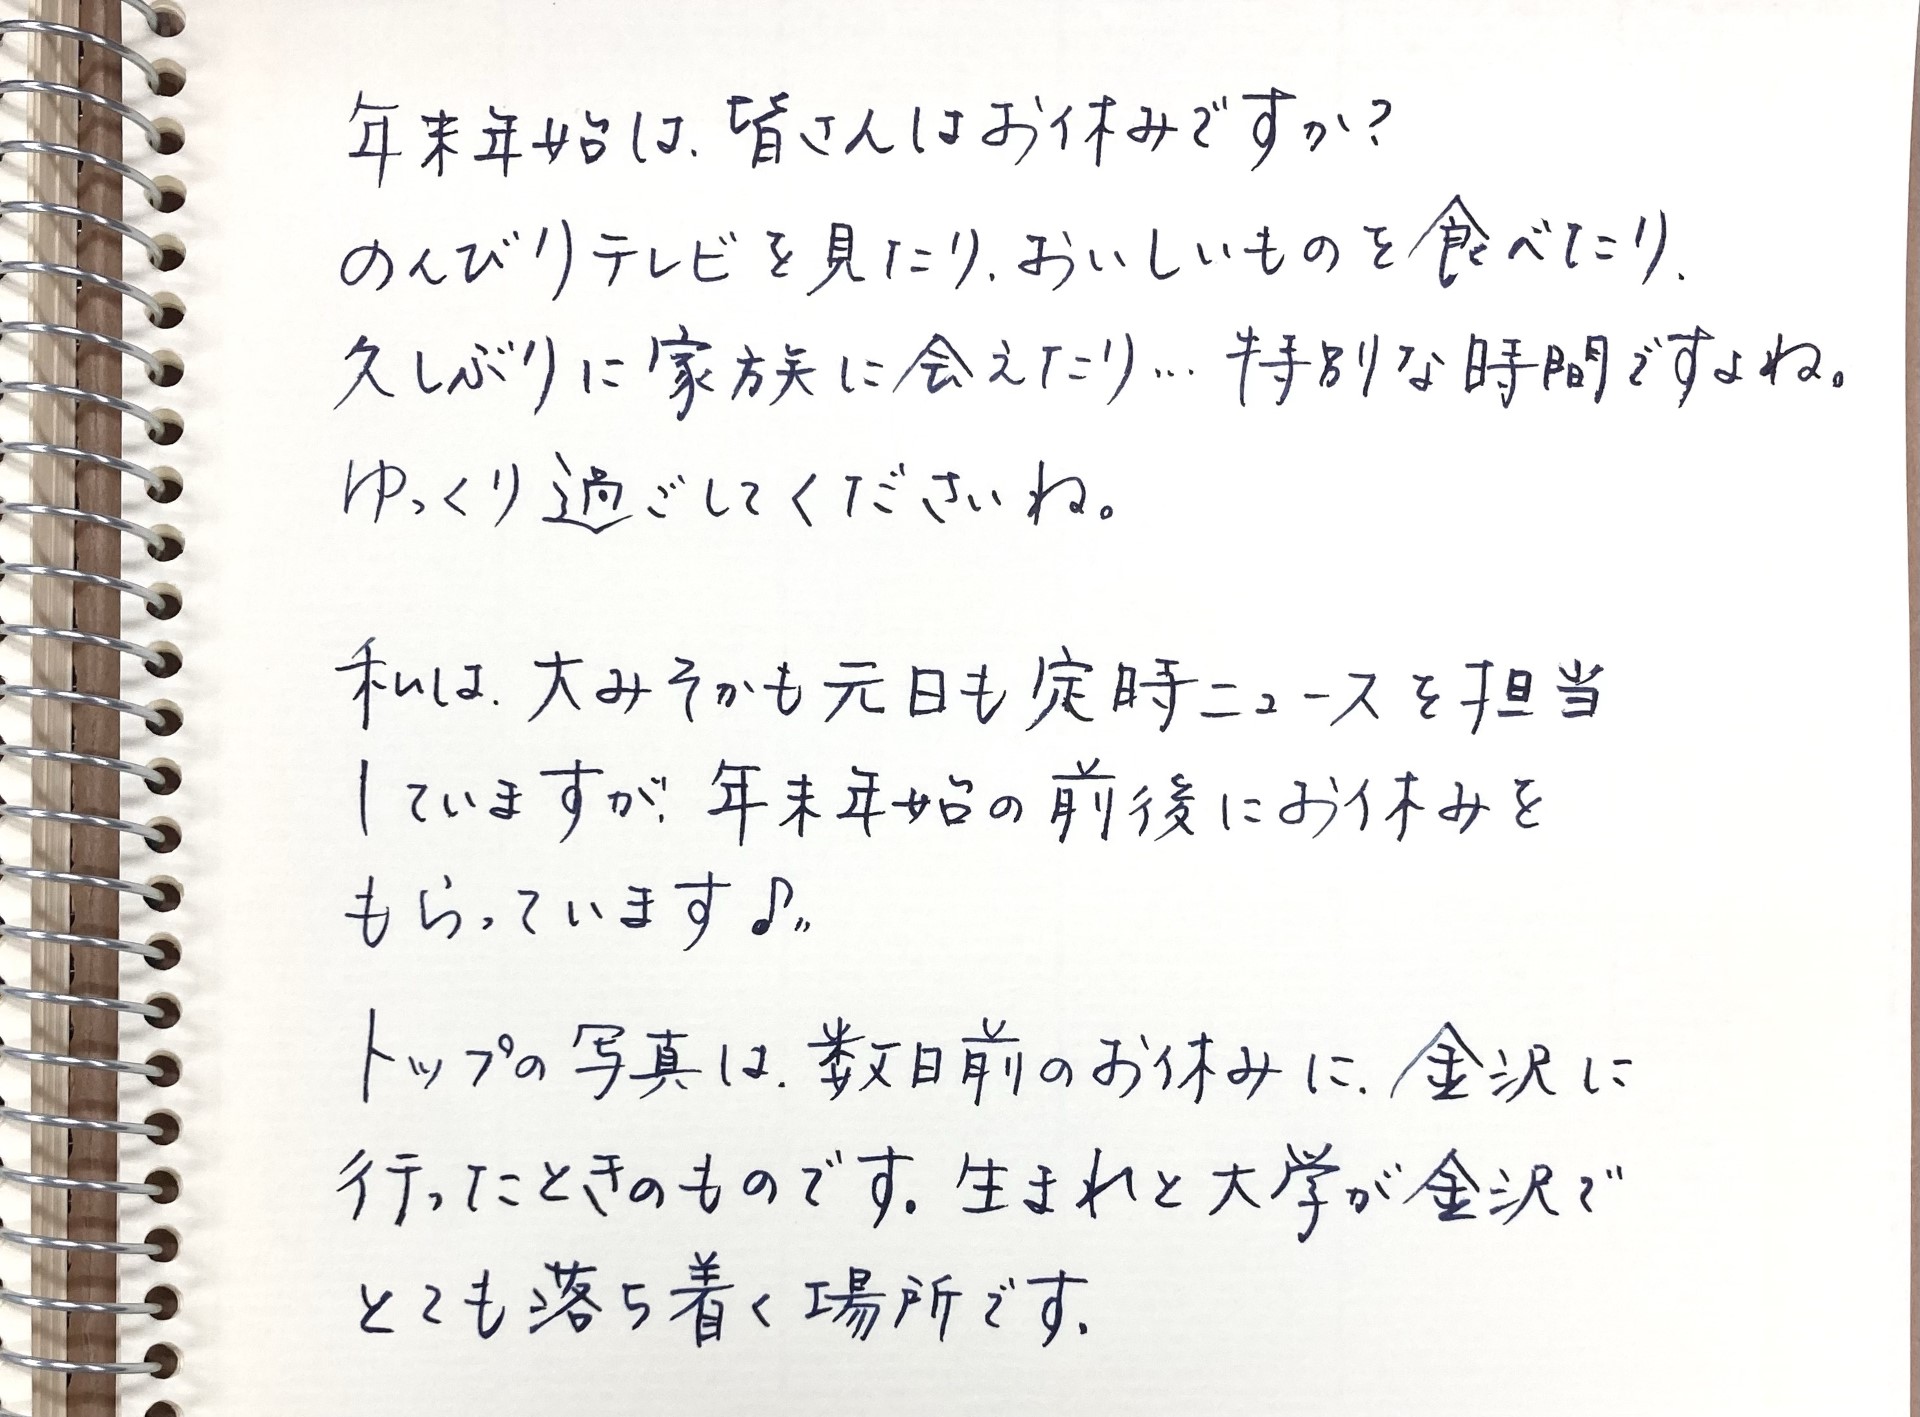 年末年始は、皆さんはお休みですか?
のんびりテレビを見たり、おいしいものを食べたり、
久しぶりに家族に会えたり… 特別な時間ですよね。
ゆっくり過ごしてくださいね。
私は、大みそかも元日も定時ニュースを担当
していますが、年末年始の前後にお休みを
もらっています♪〃
トップの写真は、数日前のお休みに、金沢に
行ったときのものです。生まれと大学が金沢で
とても落ち着く場所です。